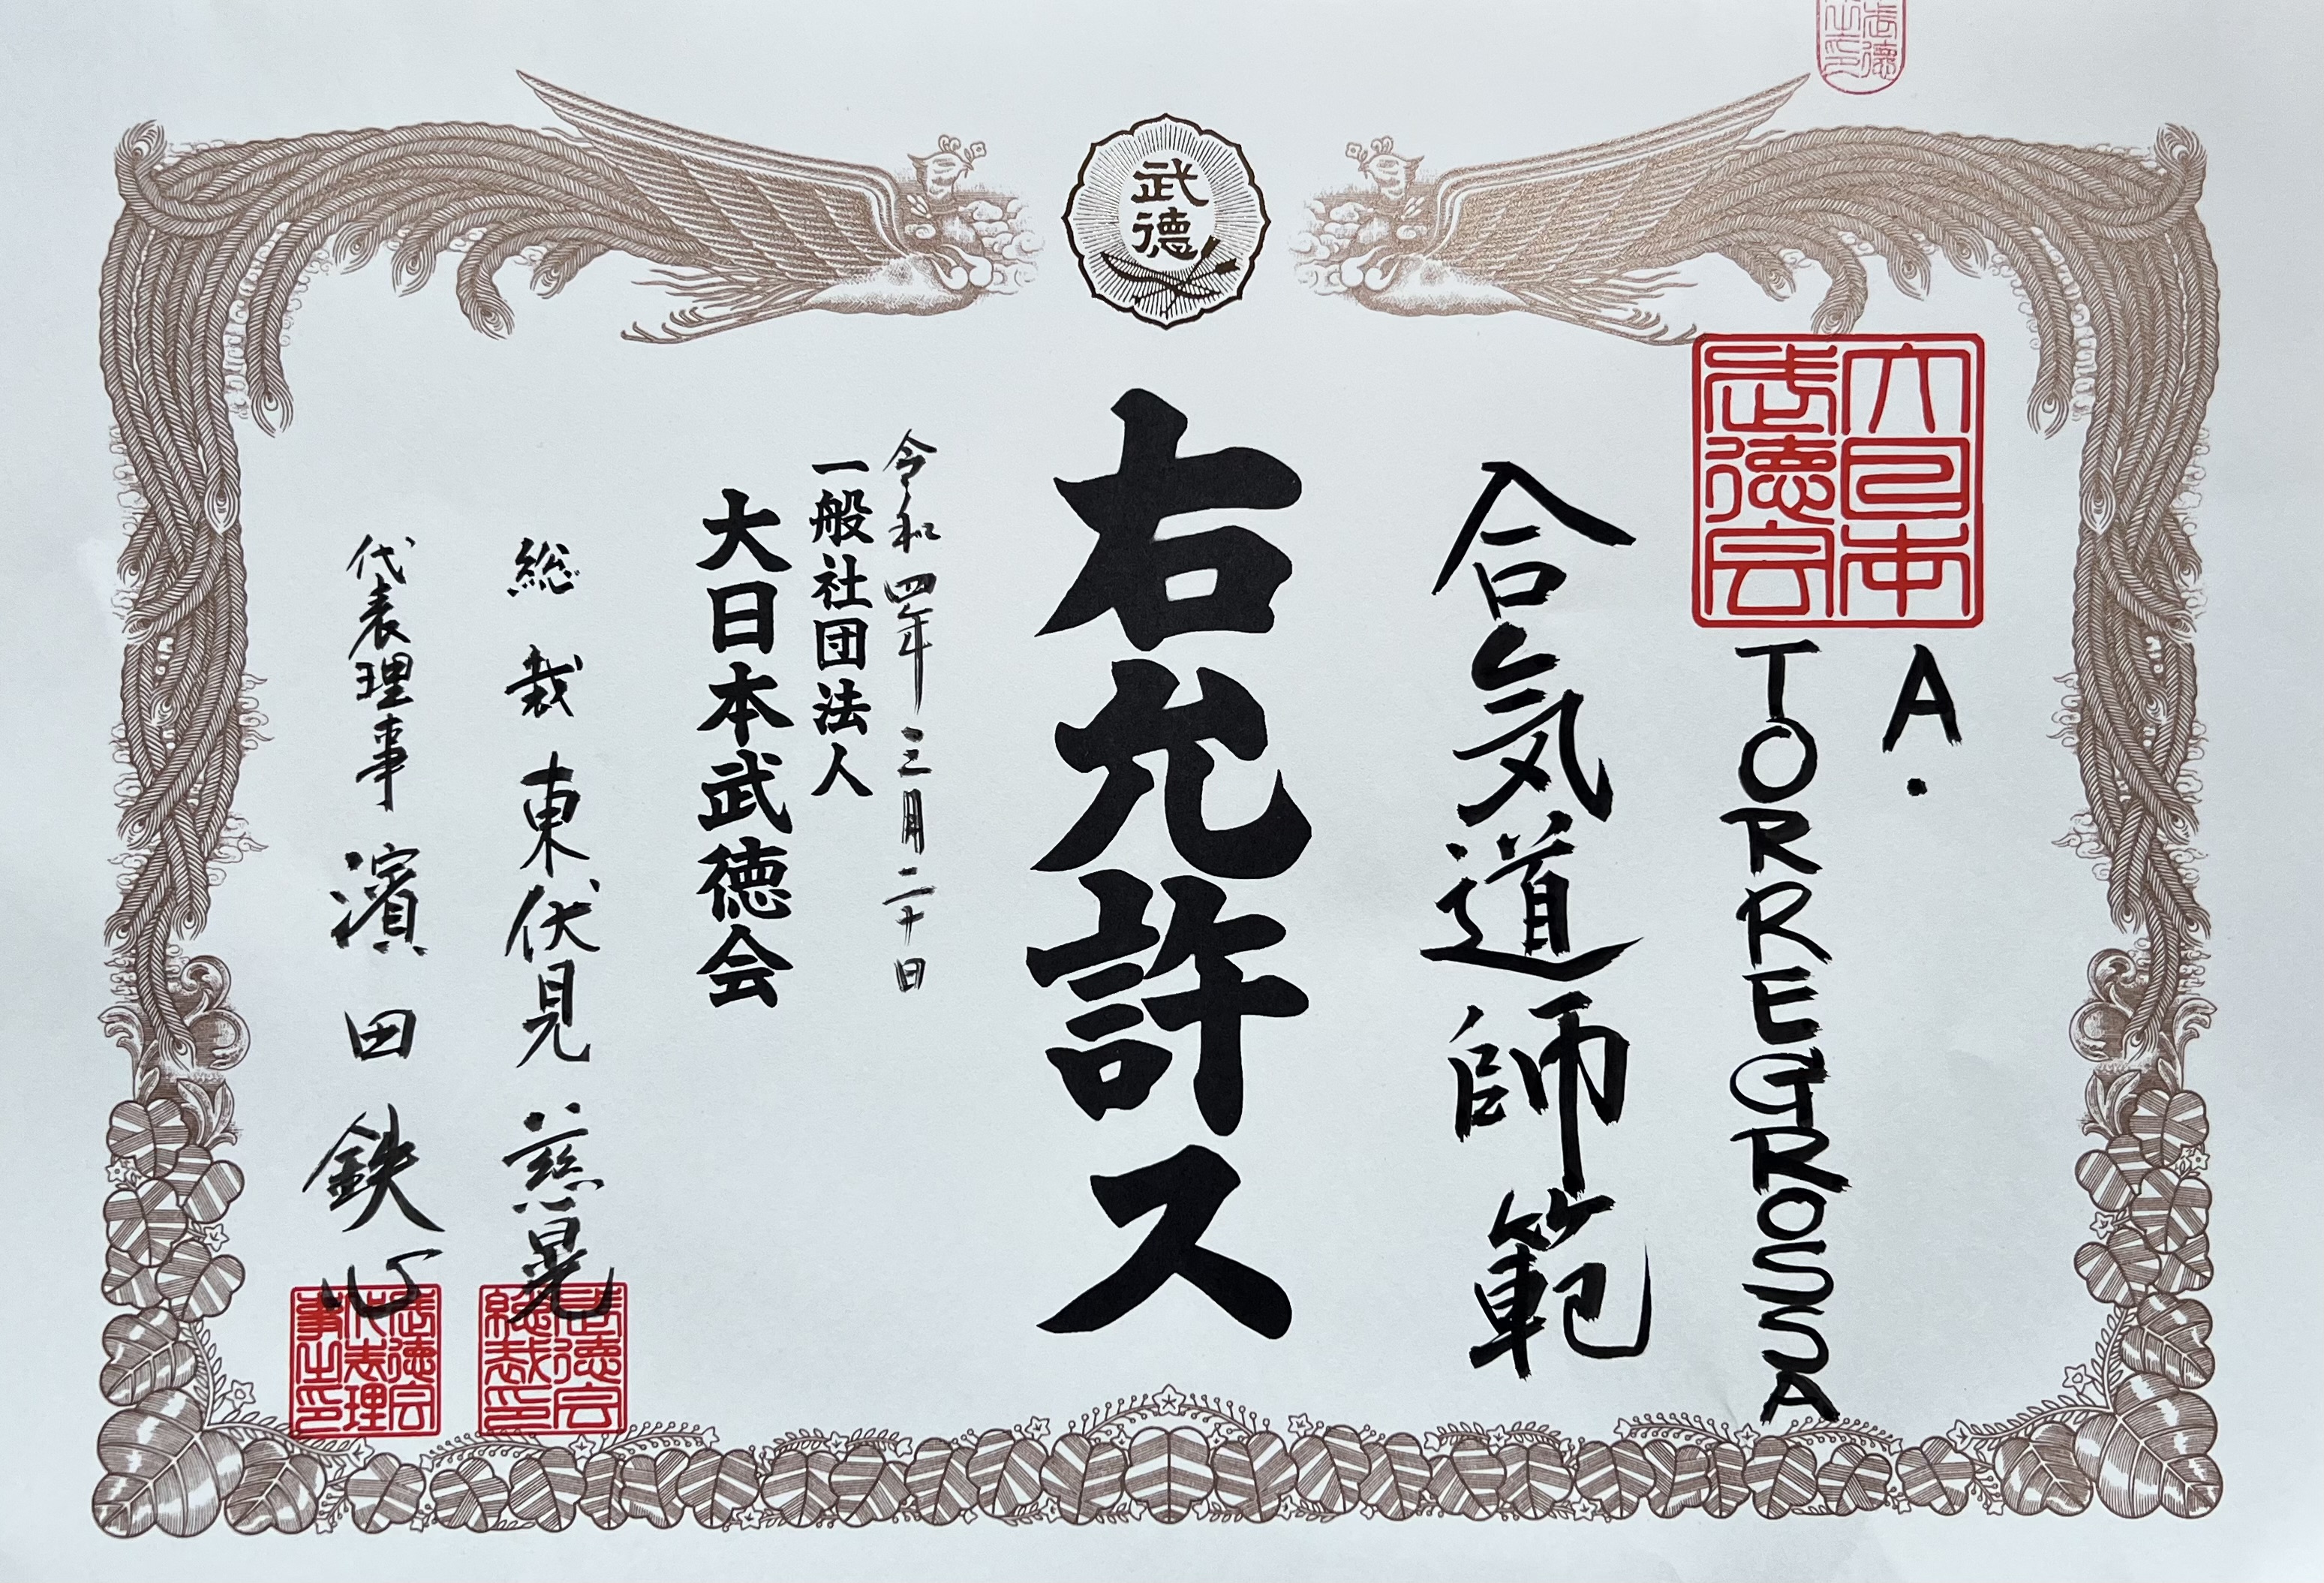 武徳
大日本
武徳会
A.
TORREGROSSA
合気道師範
右允許ス
令和四年三月二十日
一般社団法人
大日本武徳会
総裁 東伏見 慈晃
武徳会
総裁印
代表理事 濱田 鉄心
武徳会
代表理
事之印